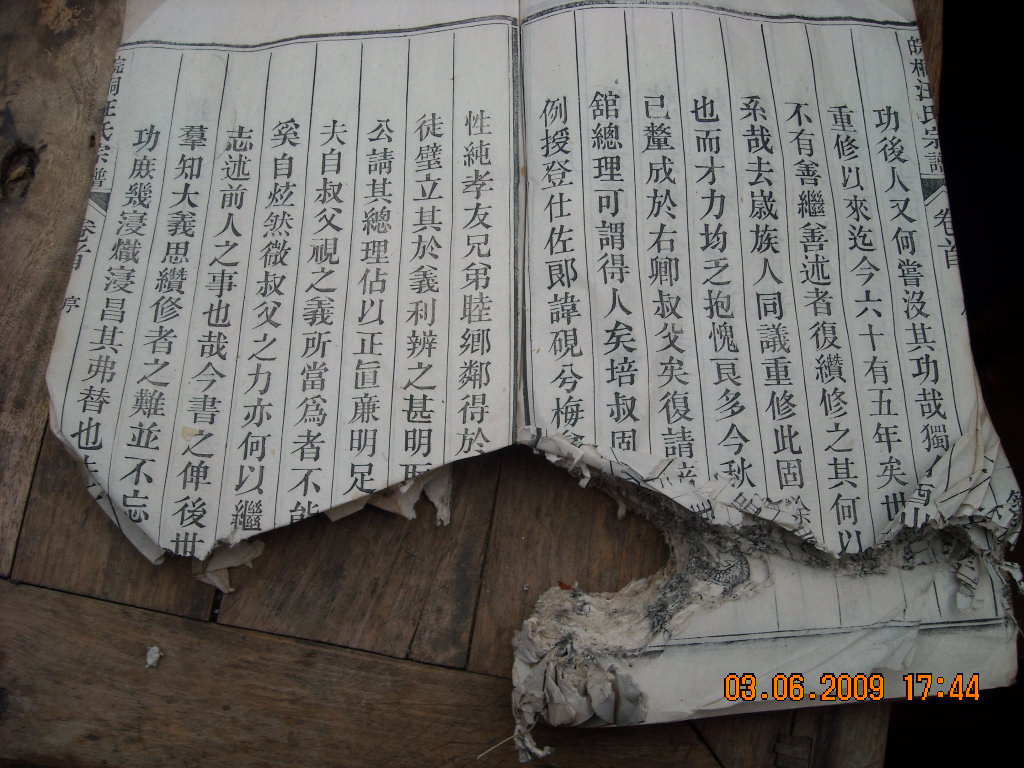 皖桐汪氏宗譜
卷首
功後人又何嘗沒其功哉獨
重修以來迄今六十有五年矣世
不有善繼善述者復纘修之其何以
系哉去嵗族人同議重修此固
也而才力均乏抱愧良多今秋
已釐成於右卿叔父矣復請
舘總理可謂得人矣培叔固
例授登仕佐郎諱硯兮梅
性純孝友兄弟睦鄉鄰得於
徒壁立其於義利辨之甚明
公請其總理佔以正直廉明足
夫自叔父視之義所當爲者不能
奚自炫然微叔父之力亦何以繼
志述前人之事也哉今書之俾後世
羣知大義思纘修者之難並不忘
功庶幾寖熾寖昌其弗替也
皖桐汪氏宗譜
卷首
序
03.06.2009 17:44